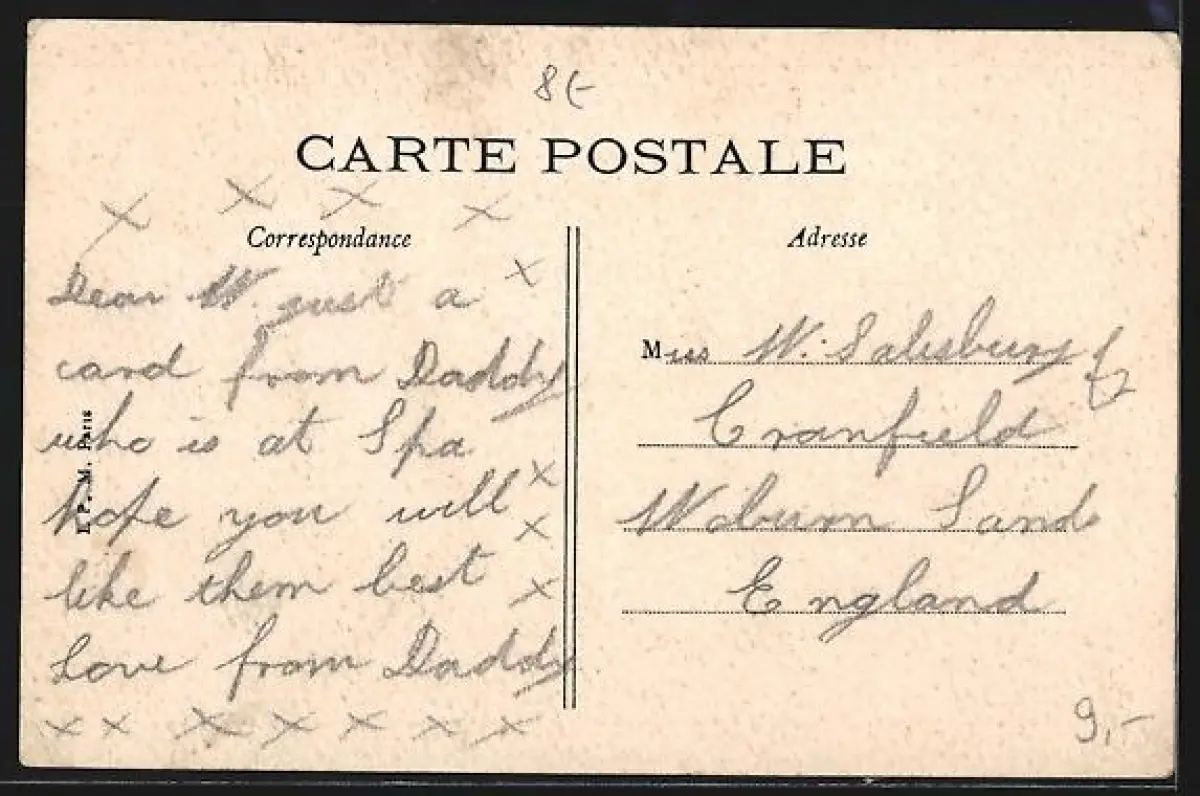 8(-
CARTE POSTALE
X X X X
Correspondance
Adresse
Dear W. just a X
card from Daddy
who is at Spa
hope you will X
X
like them best X
love from Daddy
X X X X X X X
E. P. M. Paris
Miss W. Salisbury
Cranfield
Woburn Sands
England
9,-